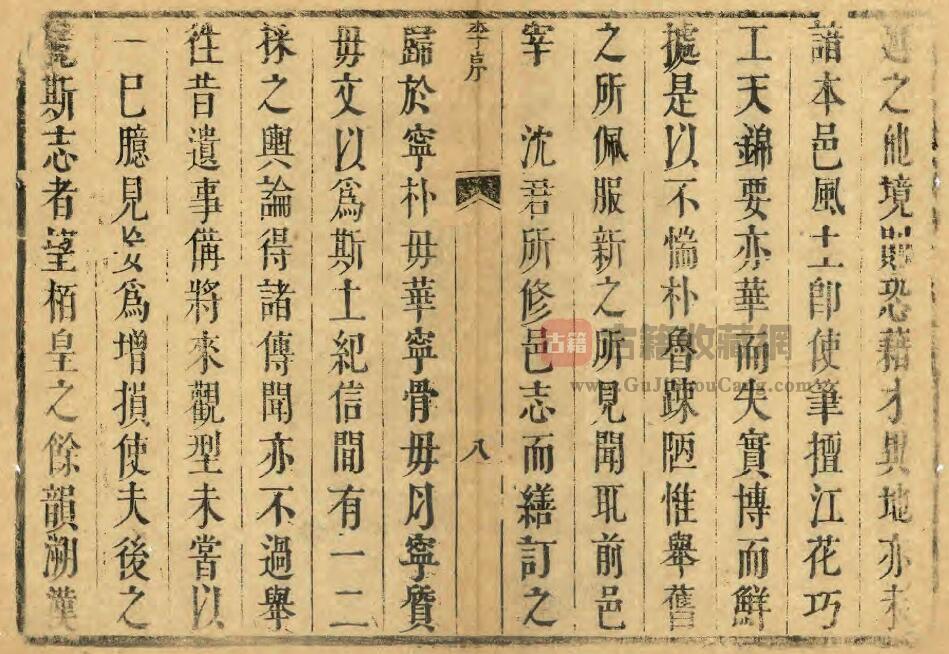 之他境則恐藉才異地亦未
諳本邑風土即使筆擅江花巧
工天錦要亦華而失實博而鮮
據是以不惴朴魯踈陋惟舉舊
之所佩服新之所見聞耴前邑
宰 沈君所修邑志而繕訂之
李序 八
歸於寧朴毋華寧骨毋肉寧質
毋文以爲斯土紀信間有一二
採之輿論得諸傳聞亦不過舉
徃昔遺事備將來觀型未嘗以
一巳臆見妄爲增損使夫後之
覽斯志者望栢皇之餘韻溯漢
古籍 古籍收藏網
www.GuJiShouCang.com